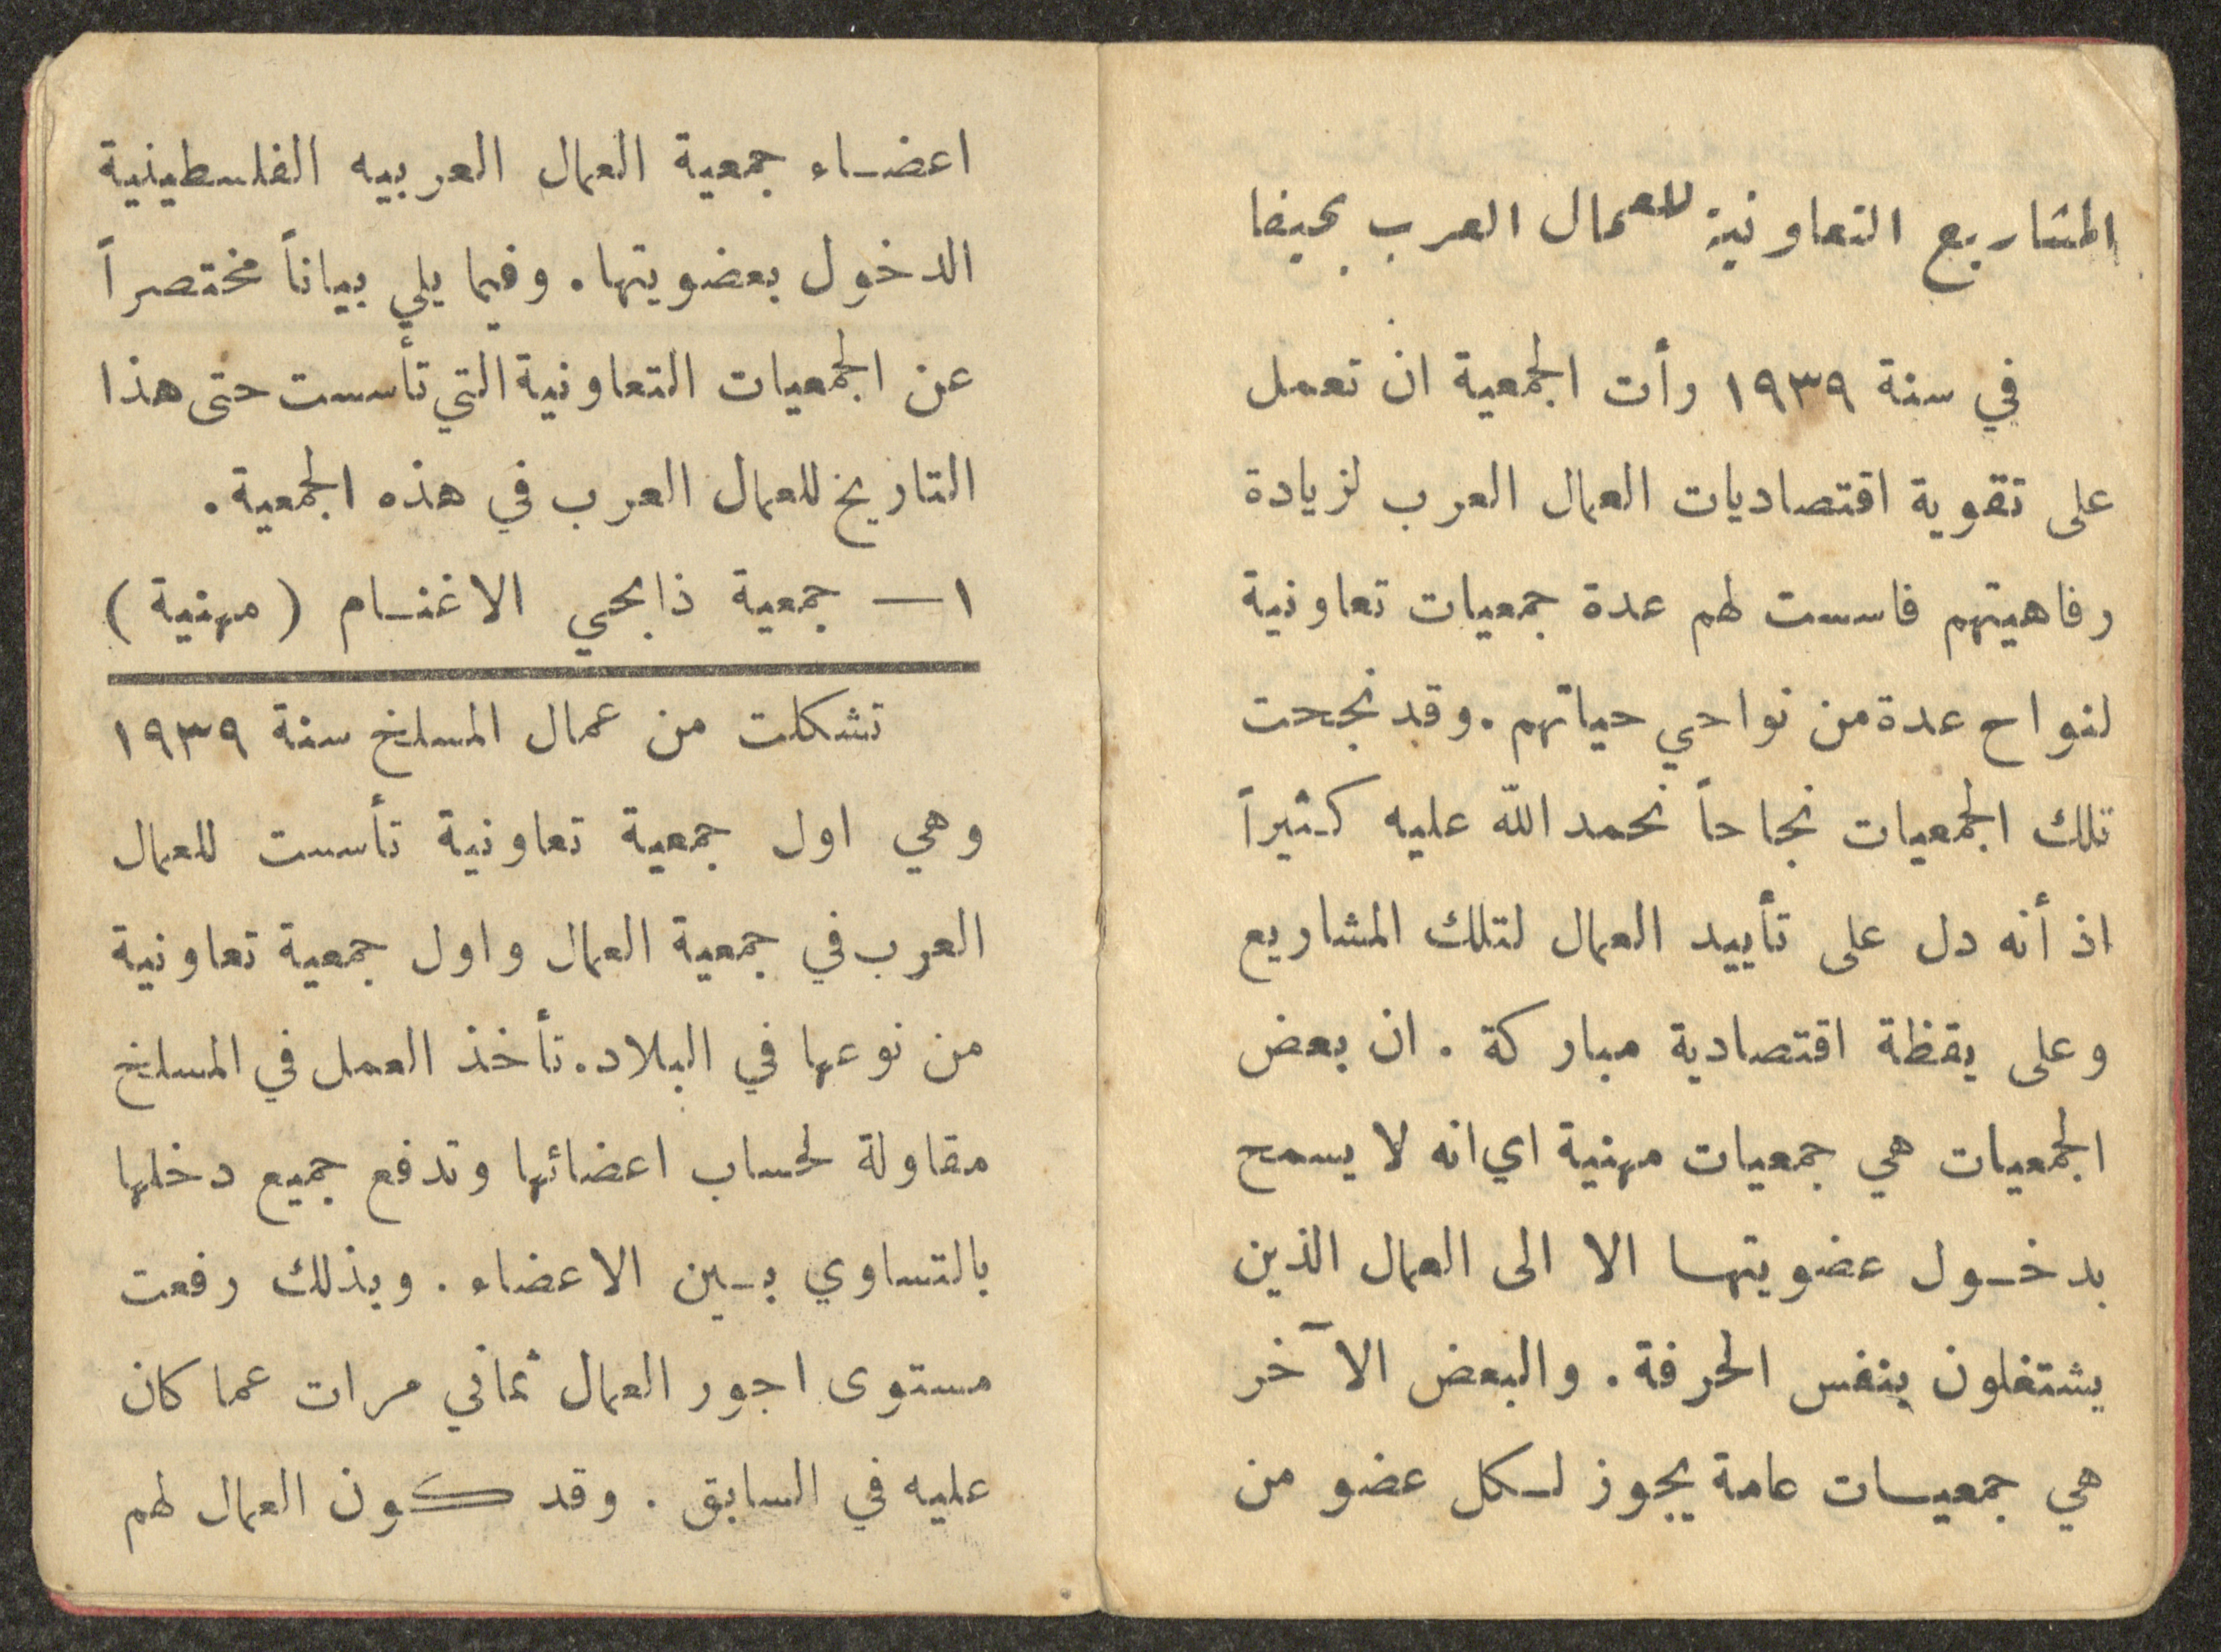 المشاريع التعاونية للعمال العرب بحيفا
في سنة ١٩٣٩ رأت الجمعية ان تعمل
على تقوية اقتصاديات العمال العرب لزيادة
رفاهيتهم فاسست لهم عدة جمعيات تعاونية
لنواح عدة من نواحي حياتهم. وقد نجحت
تلك الجمعيات نجاحاً نحمد الله عليه كثيراً
اذ أنه دل على تأييد العمال لتلك المشاريع
وعلى يقظة اقتصادية مباركة. ان بعض
الجمعيات هي جمعيات مهنية اي انه لا يسمح
بدخول عضويتها الا الى العمال الذين
يشتغلون بنفس الحرفة. والبعض الآخر
هي جمعيات عامة يجوز لكل عضو من
اعضاء جمعية العمال العربيه الفلسطينية
الدخول بعضويتها. وفيما يلي بياناً مختصراً
عن الجمعيات التعاونية التي تأسست حتى هذا
التاريخ للعمال العرب في هذه الجمعية.
١— جمعية ذابحي الاغنام (مهنية)
تشكلت من عمال المسلخ سنة ١٩٣٩
وهي اول جمعية تعاونية تأسست للعمال
العرب في جمعية العمال واول جمعية تعاونية
من نوعها في البلاد. تأخذ العمل في المسلخ
مقاولة لحساب اعضائها وتدفع جميع دخلها
بالتساوي بين الاعضاء. وبذلك رفعت
مستوى اجور العمال ثماني مرات عما كان
عليه في السابق. وقد كون العمال لهم